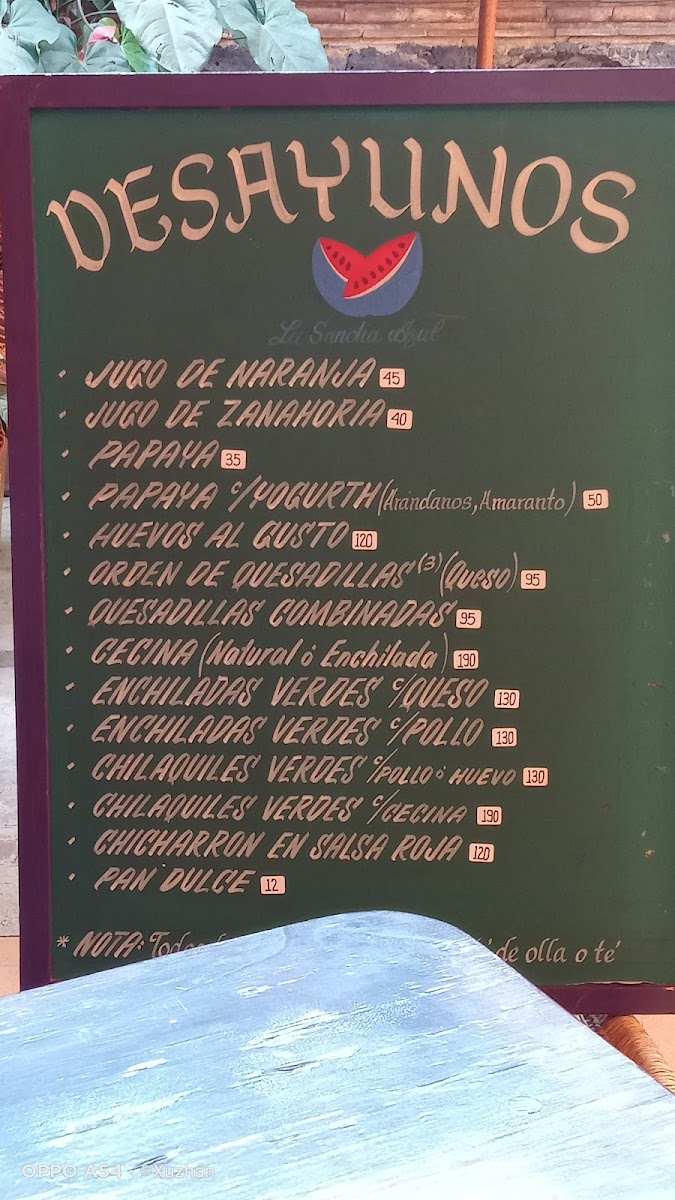 DESAYUNOS
La Sandia Azul
• JUGO DE NARANJA 45
• JUGO DE ZANAHORIA 40
• PAPAYA 35
• PAPAYA c/YOGURTH (Arándanos, Amaranto) 50
• HUEVOS AL GUSTO 120
• ORDEN DE QUESADILLAS (3) (Queso) 95
• QUESADILLAS COMBINADAS 95
• CECINA (Natural ó Enchilada) 190
• ENCHILADAS VERDES c/QUESO 130
• ENCHILADAS VERDES c/POLLO 130
• CHILAQUILES VERDES c/POLLO ó HUEVO 130
• CHILAQUILES VERDES c/CECINA 190
• CHICHARRON EN SALSA ROJA 120
• PAN DULCE 12
* NOTA: de olla o te'
OPPO A54 · ©Xuzhan